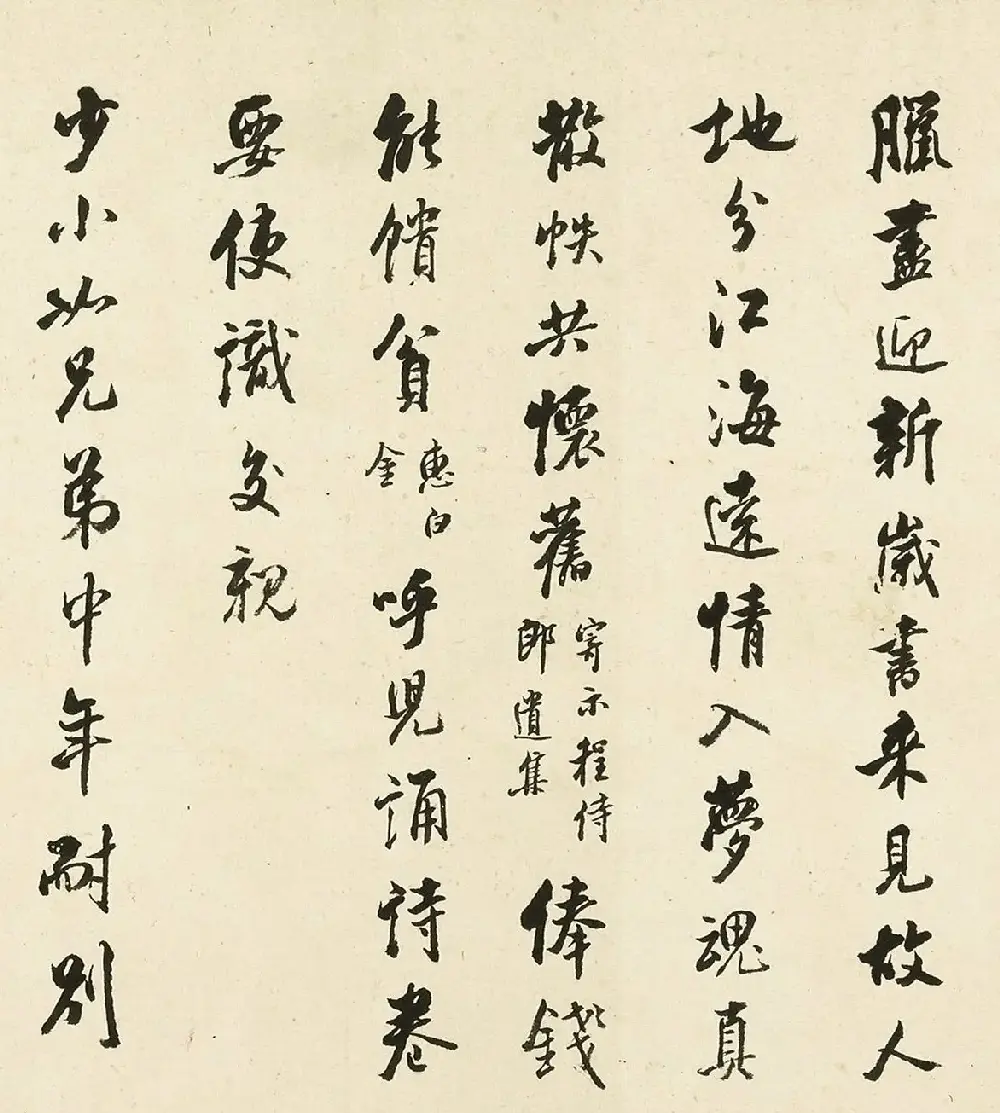 臘盡迎新歲書来見故人
地分江海遠情入夢魂真
散帙共懷舊寄示程侍郎遺集俸錢
能饋貧惠白金呼兒誦詩卷
要使識交親
少小如兄弟中年耐別